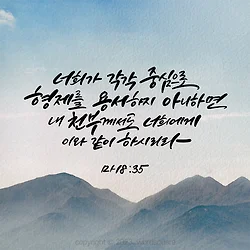 너희가 각각 중심으로
형제를 용서하지 아니하면
내 천부께서도 너희에게
이와 같이 하시리라
마18:35